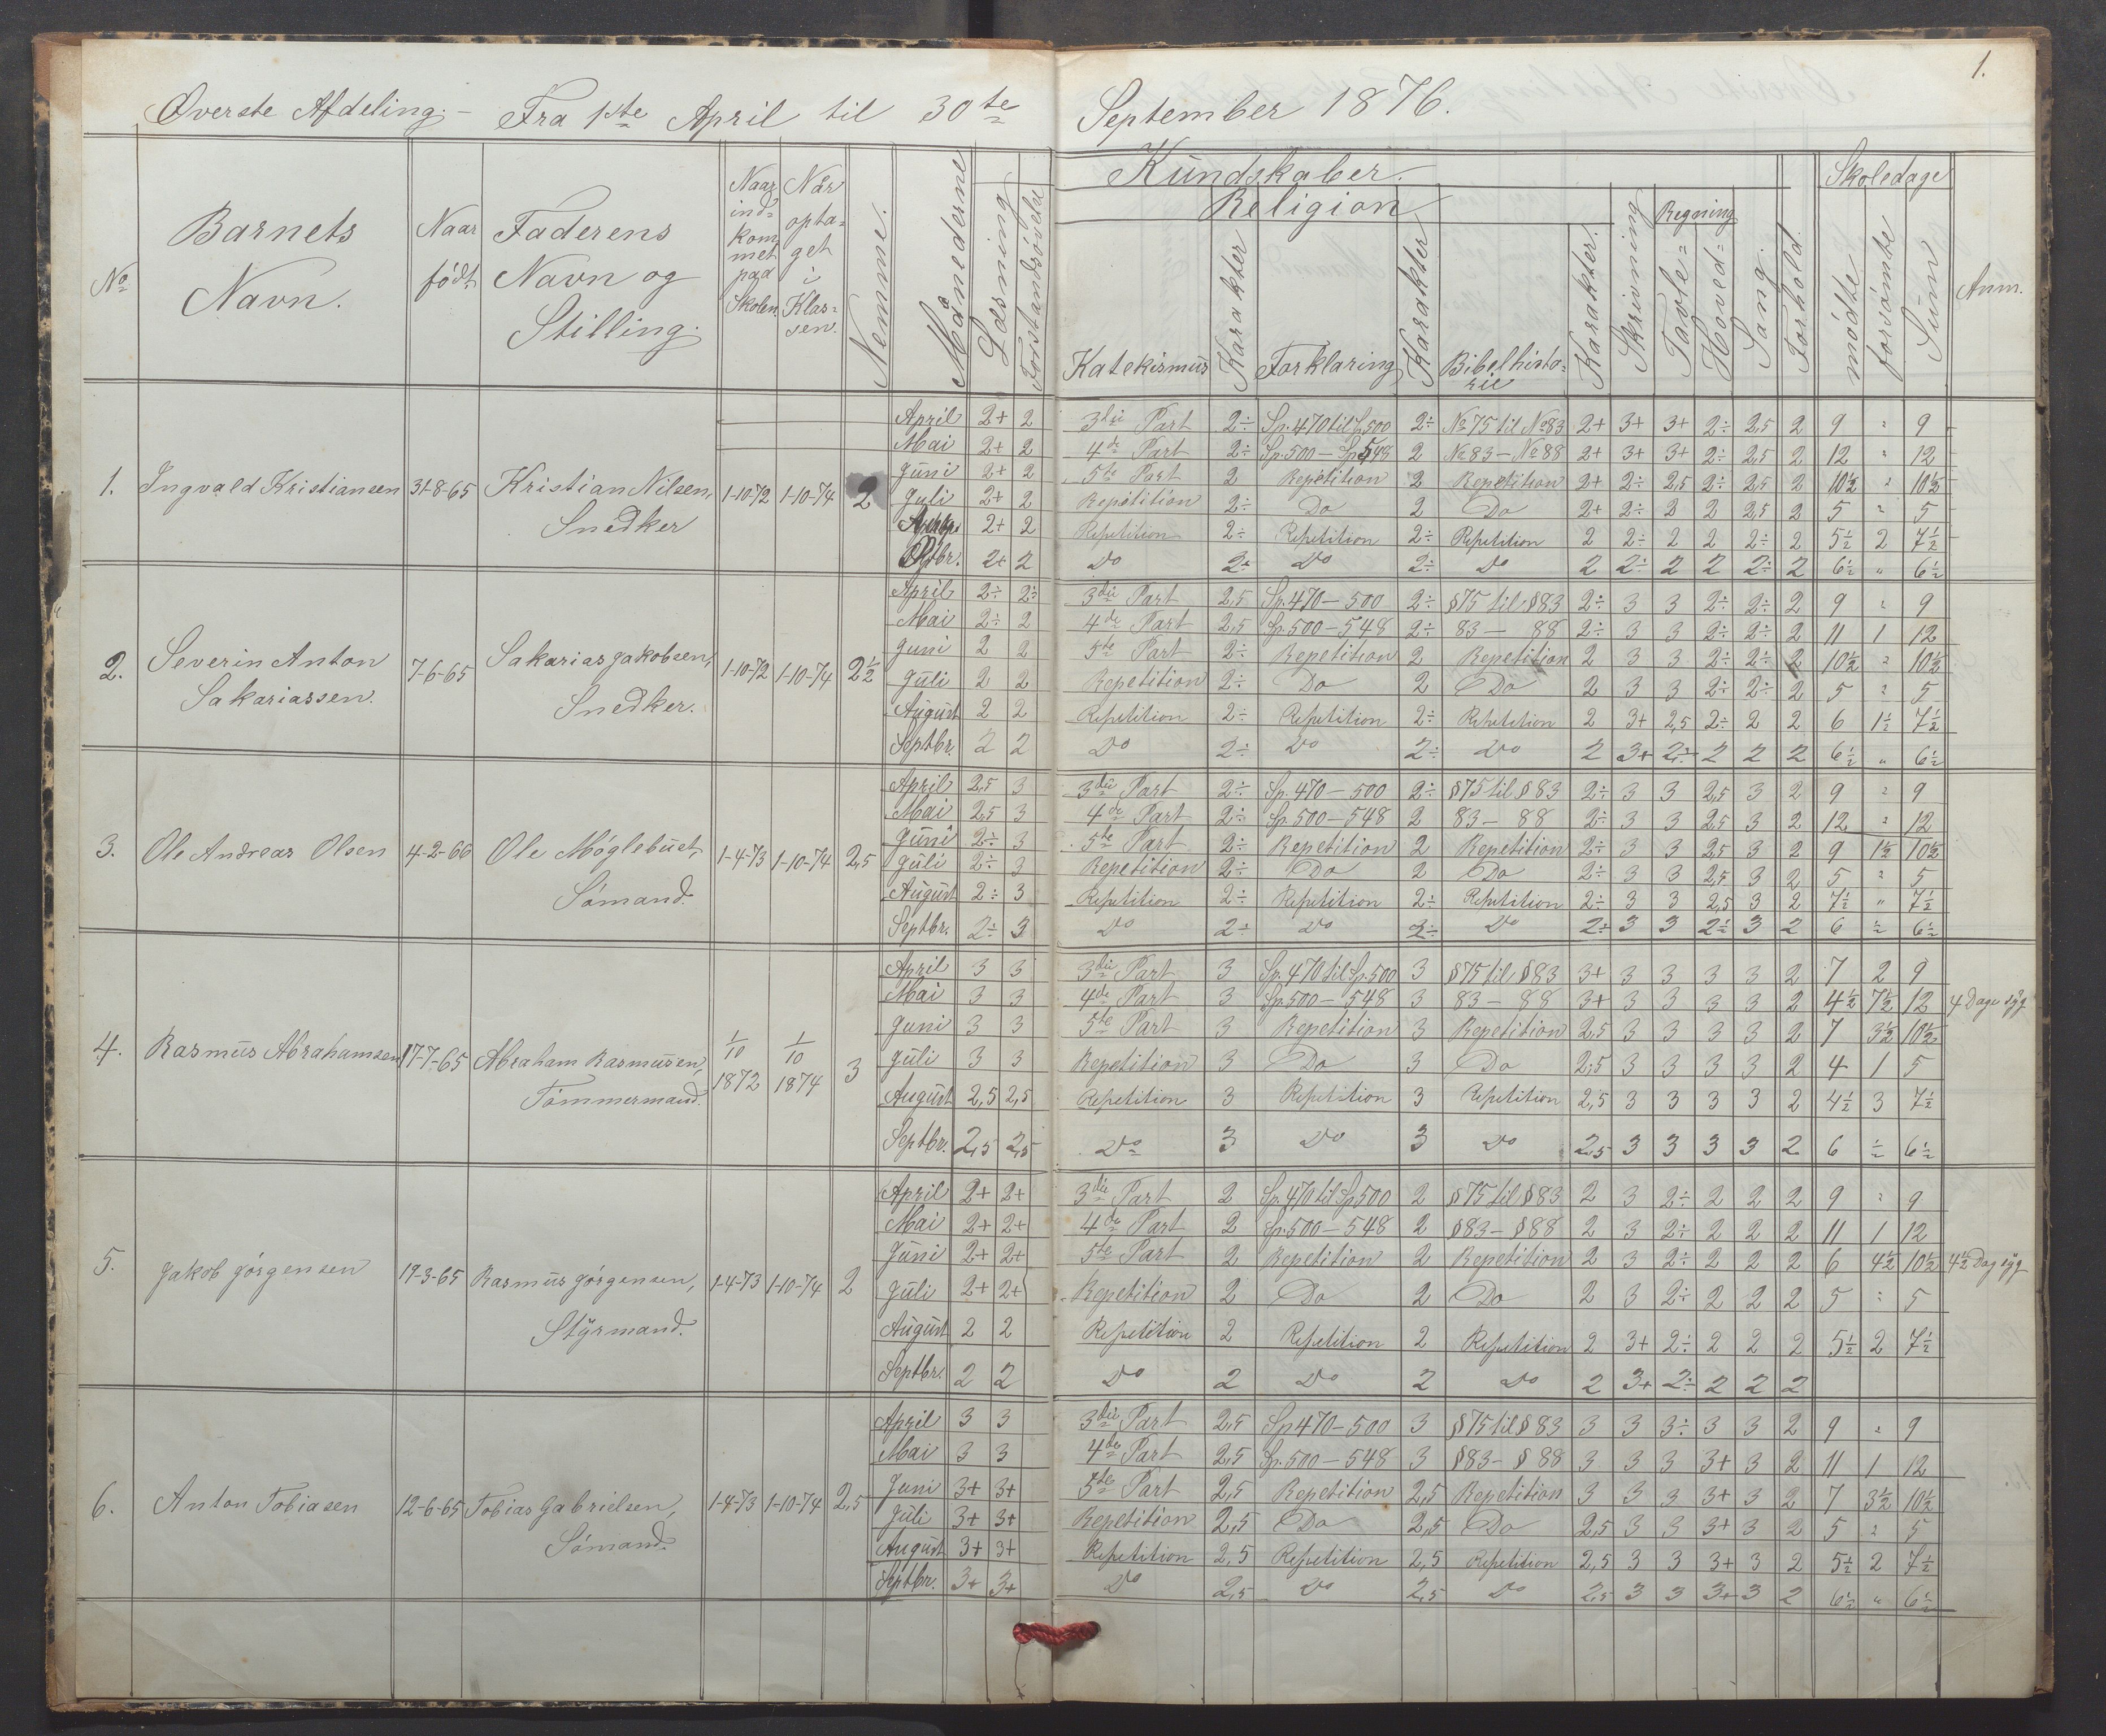 1.
Øverste Afdeling. — Fra 1ste April til 30te September 1876.
No Barnets Navn. Naar født Faderens Navn og Stilling. Naar ind= kommet paa Skolen Når opta= get i Klas= sen. Nemme. Månederne Læsning Forstandsøvelse
Kundskaber. Skoledage
Religion Regning
Katekismus Karakter Forklaring Karakter Bibelhisto= rie Karakter. Skrivning Tavle= Hoved= Sang. Forhold. mødte forsömte Sum Anm.
1. Ingvald Kristiansen 31-8-65 Kristian Nilsen, Snedker 1-10-72 1-10-74 2
April 2+ 2 3die Part 2÷ Sp. 470 til Sp. 500 2÷ No 75 til No 83 2+ 3+ 3+ 2÷ 2,5 2 9 " 9
Mai 2+ 2 4de Part 2÷ Sp. 500 — Sp 548 2 No 83 — No 88 2+ 3+ 3+ 2÷ 2,5 2 12 " 12
Juni 2+ 2 5te Part 2 Repetition 2 Repetition 2+ 2÷ 2,5 2÷ 2,5 2 10½ " 10½
Juli 2+ 2 Repetition 2÷ Do 2 Do 2+ 2÷ 2 2 2,5 2 5 " 5
2+ 2 Repetition 2÷ Repetition 2÷ Repetition 2 2÷ 2 2 2÷ 2 5½ 2 7½
2+ 2 Do 2÷ Do 2÷ Do 2 2÷ 2 2 2÷ 2 6½ " 6½
2. Severin Anton Sakariassen. 7-6-65 Sakarias Jakobsen, Snedker. 1-10-72 1-10-74 2½
April 2÷ 2÷ 3die Part 2,5 Sp. 470 — 500 2÷ §75 til §83 2÷ 3 3 2÷ 2÷ 2 9 " 9
Mai 2÷ 2 4de Part 2,5 Sp. 500 — 548 2÷ 83 — 88 2÷ 3 3 2÷ 2÷ 2 11 1 12
Juni 2 2 5te Part 2÷ Repetition 2 Repetition 2 3 3 2÷ 2÷ 2 10½ " 10½
Juli 2 2 Repetition 2÷ Do 2 Do 2 3 3 2÷ 2÷ 2 5 " 5
August 2 2 Repetition 2÷ Repetition 2÷ Repetition 2 3+ 2,5 2÷ 2 2 6 1½ 7½
Septbr. 2 2 Do 2÷ Do 2÷ Do 2 3+ 2÷ 2 2 2 6½ " 6½
3. Ole Andreas Olsen 4-2-66 Ole Möglebust, Sømand. 1-4-73 1-10-74 2,5
April 2,5 3 3die Part 2÷ Sp. 470 — 500 2÷ §75 til §83 2÷ 3 3 2,5 3 2 9 " 9
Mai 2,5 3 4de Part 2÷ Sp. 500 — 548 2 83 — 88 2÷ 3 3 2,5 3 2 12 " 12
Juni 2÷ 3 5te Part 2÷ Repetition 2 Repetition 2÷ 3 3 2,5 3 2 9 1½ 10½
Juli 2÷ 3 Repetition 2÷ Do 2 Do 2÷ 3 3 2,5 3 2 5 " 5
August 2÷ 3 Repetition 2÷ Repetition 2÷ Repetition 2÷ 3 3 2,5 3 2 7½ " 7½
Septbr. 2÷ 3 Do 2÷ Do 2÷ Do 2÷ 3 3 2½ 3 2 6 ½ 6½
4. Rasmus Abrahamsen 17-7-65 Abraham Rasmussen, Tømmermand. 1/10 1872 1/10 1874 3
April 3 3 3die Part 3 Sp. 470 til Sp. 500 3 §75 til §83 3+ 3 3 3 3 2 7 2 9
Mai 3 3 4de Part 3 Sp. 500 — 548 3 83 — 88 3+ 3 3 3 3 2 4½ 7½ 12 4 Dage syg
Juni 3 3 5te Part 3 Repetition 3 Repetition 2,5 3 3 3 3 2 7 3½ 10½
Juli 3 3 Repetition 3 Do 3 Do 2,5 3 3 3 3 2 4 1 5
August 2,5 2,5 Repetition 3 Repetition 3 Repetition 2,5 3 3 3 3 2 4½ 3 7½
Septbr. 2,5 2,5 Do 3 Do 3 Do 2,5 3 3 3 3 2 6 ½ 6½
5. Jakob Jörgensen 19-3-65 Rasmus Jörgensen, Styrmand. 1-4-73 1-10-74 2
April 2+ 2+ 3die Part 2 Sp. 470 til Sp 500 2 §75 til §83 2 3 2÷ 2 2 2 9 " 9
Mai 2+ 2+ 4de Part 2 Sp. 500 — 548 2 §83 — §88 2 3 2÷ 2 2 2 11 1 12
Juni 2+ 2+ 5te Part 2 Repetition 2 Repetition 2 3 2÷ 2 2 2 6 4½ 10½ 4½ Dag syg
Juli 2+ 2+ Repetition 2 Do 2 Do 2 3 2÷ 2 2 2 5 " 5
August 2 2 Repetition 2 Repetition 2 Repetition 2 3+ 2÷ 2 2 2 5½ 2 7½
Septbr. 2 2 Do 2 Do 2 Do 2 3+ 2÷ 2 2 2
6. Anton Tobiasen 12-6-65 Tobias Gabrielsen, Sømand. 1-4-73 1-10-74 2,5
April 3 3 3die Part 2,5 Sp 470 — 500 3 §75 til §83 3 3 3÷ 3 3 2 9 " 9
Mai 3 3 4de Part 2,5 Sp. 500 — 548 3 §83 — §88 3 3 3 3+ 3 2 11 1 12
Juni 3+ 3+ 5te Part 2,5 Repetition 2,5 Repetition 3 3 3 3+ 3 2 7 3½ 10½
Juli 3+ 3+ Repetition 2,5 Do 2,5 Do 2,5 3 3 3+ 3 2 5 " 5
August 3+ 3+ Repetition 2,5 Repetition 2,5 Repetition 2,5 3 3 3+ 3 2 5½ 2 7½
Septbr. 3+ 3+ Do 2,5 Do 2,5 Do 2,5 3 3 3+ 3 2 6½ " 6½